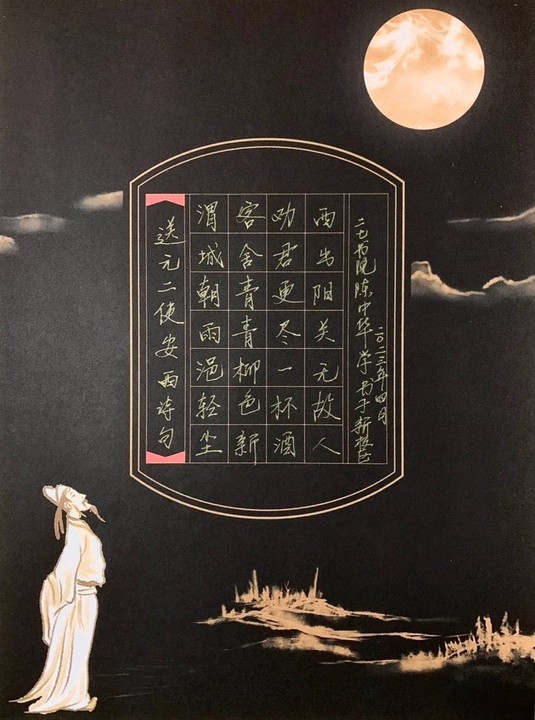 送元二使安西诗句
渭城朝雨浥轻尘
客舍青青柳色新
劝君更尽一杯酒
西出阳关无故人
二七书院陈中华学书于新
二〇二三年四月